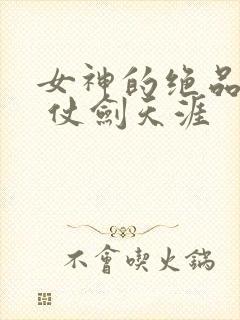 女神的绝品
仗劍天涯
不會喫火鍋